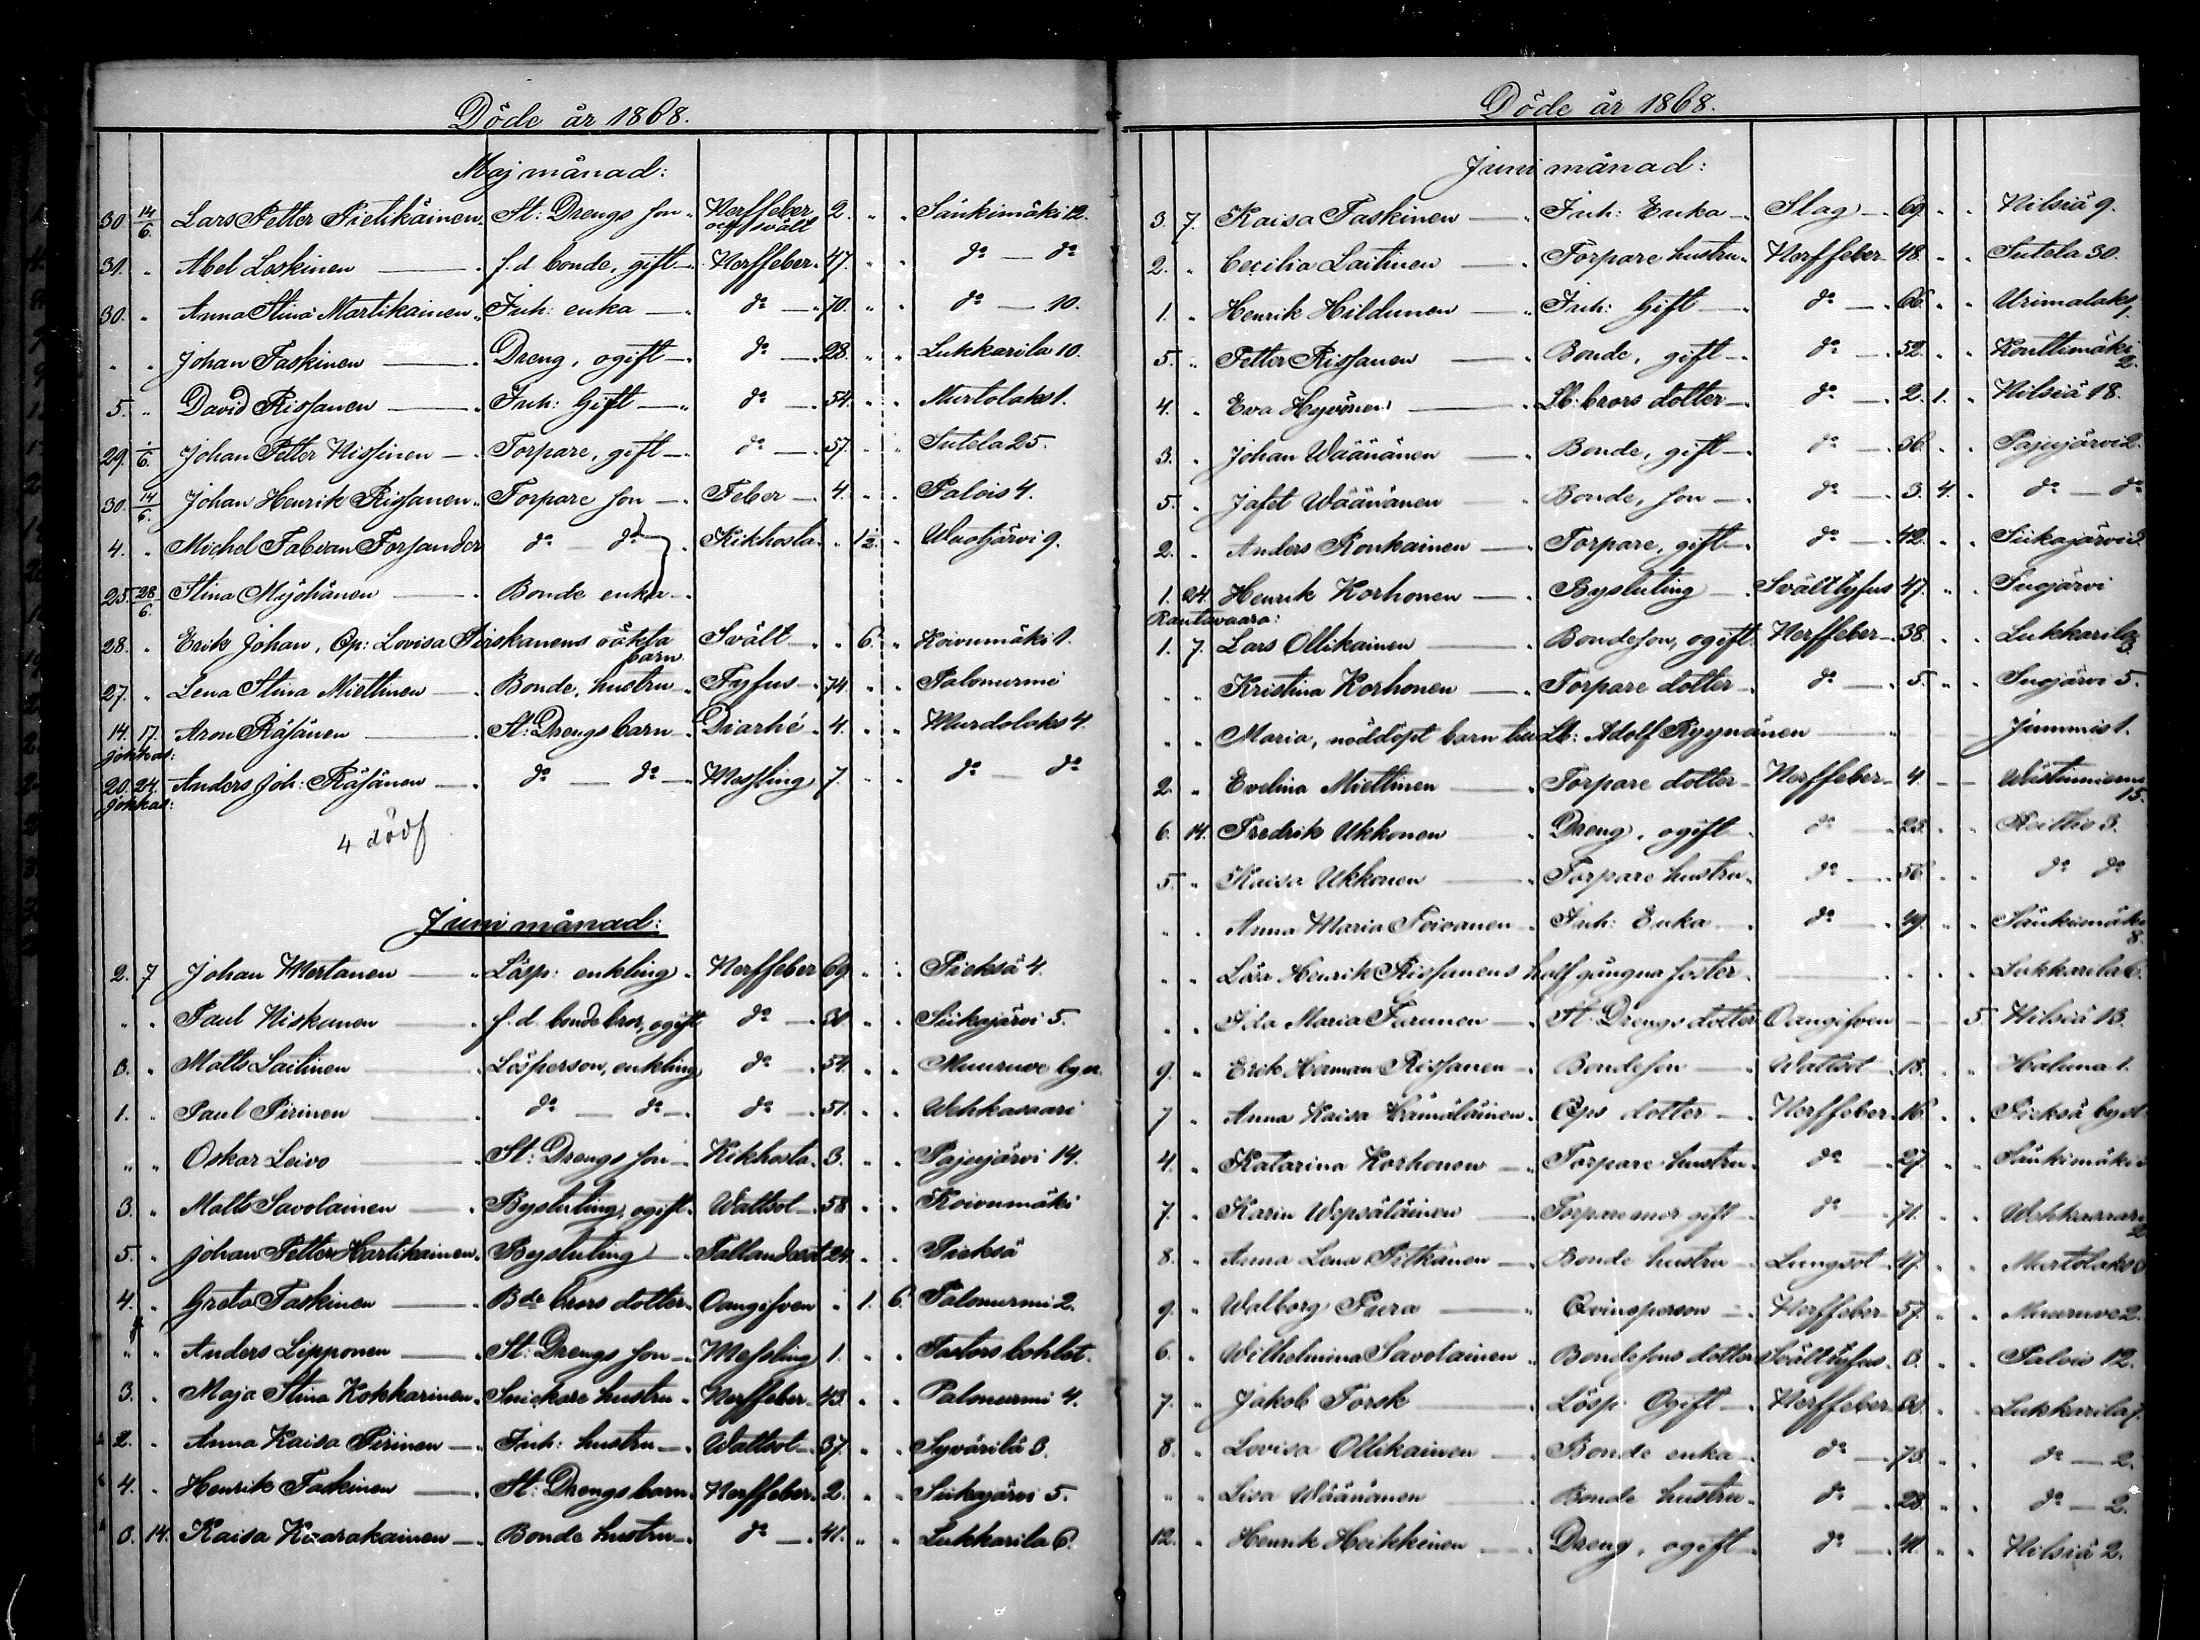 Döde år 1868.
Maj månad:
30. 14/6. Lars Petter Pietikäinen St: Drengs son Nerffeber och svält 2. " " Sänkimäki 12.
31. " Abel Loskinen f.d. bonde, gift Nerffeber 47. " " do do
30. " Anna Stina Martikainen Inh: enka do 70. " " do 10.
" " Johan Taskinen Dreng, ogift do 28. " " Lukkarila 10.
5. " David Rissanen Inh: Gift do 54. " " Murtolaks 1.
29. 1/6. Johan Petter Nissinen Torpare, gift do 57. " " Sutela 25.
30. 14/6. Johan Henrik Rissanen Torpare son Feber 4. " " Palois 4.
4. " Michel Fabian Forsander do do Kikhosta " 1/2. " Waotjärvi 9.
25. 28/6. Stina Myöhänen Bonde enka
28. " Erik Johan, Qp: Lovisa Pirskanens oäkta barn Svält " 6. " Koivumäki 1.
27. " Lena Stina Miettinen Bonde, hustru Tyfus 74 " " Palonurmi
14. 17. Aron Räsänen St: Drengs barn Diarhé 4. " " Murdolaks 4.
Jokkas:
20. 24. Anders Joh: Räsänen do do Messling 7. " " do do
Jokkas:
4 dödf
Juni månad:
2. 7 Johan Mertanen Lösp: enkling Nerffeber 69. " " Pieksä 4.
" " Paul Niskanen f.d. bonde bror, ogift do 30 " " Siikajärvi 5.
3. " Matts Laitinen Lösperson, enkling do 54. " " Muuruve by
1. " Paul Pirinen do do do 51. " " Wehkasaari
" " Oskar Leivo St: Drengs son Kikhosta 3. " " Pajujärvi 14.
3. " Matts Savolainen Bysluting, ogift Wattsot 58 " " Koivumäki
5. " Johan Petter Hartikainen Bysluting Fallandesot 24. " " Pieksä
4. " Greta Taskinen Bde brors dotter Oangifven " 1. 6. Palonurmi 2.
" " Anders Lipponen St: Drengs son Messling 1. " " Pastors bohlet.
3. " Maja Stina Kokkarinen Snickare hustru Nerffeber 43. " " Palonurmi 4.
2. " Anna Kaisa Pirinen Inh: hustru Wattsot 37. " " Syvärilä 3.
4. " Henrik Taskinen St: Drengs barn Nerffeber 2. " " Siikajärvi 5.
3. 14. Kaisa Kaarakainen Bonde hustru do 41. " " Lukkarila 6.
Döde år 1868.
Juni månad:
3. 7. Kaisa Taskinen Inh: Enka Slag 69. " " Nilsiä 9.
2. " Cecilia Laitinen Torpare hustru Nerffeber 48. " " Sutela 30.
1. " Henrik Hildunen Inh: Gift do 66. " " Urimolaks 1.
5. " Petter Rissanen Bonde, gift do 52. " " Konttimäki 2.
4. " Eva Hyvönen Lb: brors dotter do 2. 1. " Nilsiä 18.
3. " Johan Wäänänen Bonde, gift do 36. " " Pajujärvi 2.
5. " Jafet Wäänänen Bonde, son do 3. 4. " do do
2. " Anders Ronkainen Torpare, gift do 42. " " Siikajärvi 3.
1. 24. Henrik Korhonen Bysluting Svälttyfus 47. " " Suojärvi
Rautavaara:
1. 7. Lars Ollikainen Bondeson, ogift Nerffeber 38. " " Lukkarila 3.
" " Kristina Korhonen Torpare dotter do 5. " " Suojärvi 5.
" " Maria, nöddöpt barn till Lb: Adolf Ryynänen Jummis 1.
2. " Evelina Miettinen Torpare dotter Nerffeber 4. Wästinniemi 15.
6. 14. Fredrik Ukkonen Dreng, ogift do 23. " " Reittio 3.
5. " Kaisa Ukkonen Torpare hustru do 56. " " do do
" " Anna Maria Toivanen Inh: Enka do 49. " " Sänkimäki 8.
" " Län Henrik Rissanens half gångna foster Lukkarila 6.
" " Ida Maria Turunen St: Drengs dotter Oangifven 5. Nilsiä 13.
9. " Erik Herman Rissanen Bondeson Wattsot 18. " " Haluna 1.
7 " Anna Kaisa Hämäläinen Qps dotter Nerffeber 16. " " Pieksä by
4. " Katarina Korhonen Torpare hustru do 27. " " Sänkimäki
7. " Karin Wepsäläinen Torpare mor gift do 71. " " Wehkasaari 2
8. " Anna Lena Pitkänen Bonde hustru Lungsot 47. " " Murtolaks
9. " Walborg Pura Qvinsperson Nerffeber 57. " " Muuruve 2.
6. " Wilhelmina Savolainen Bondesons dotter Svälttyfus 3. " " Palois 12.
7. " Jakob Forsk Lösp. Ogift Nerffeber 60. " " Lukkarila
8. " Lovisa Ollikainen Bonde enka do 73. " " do 2.
" " Lisa Wäänänen Bonde hustru do 28. " " do 2.
12. " Henrik Heikkinen Dreng, ogift do 41. " " Nilsiä 2.